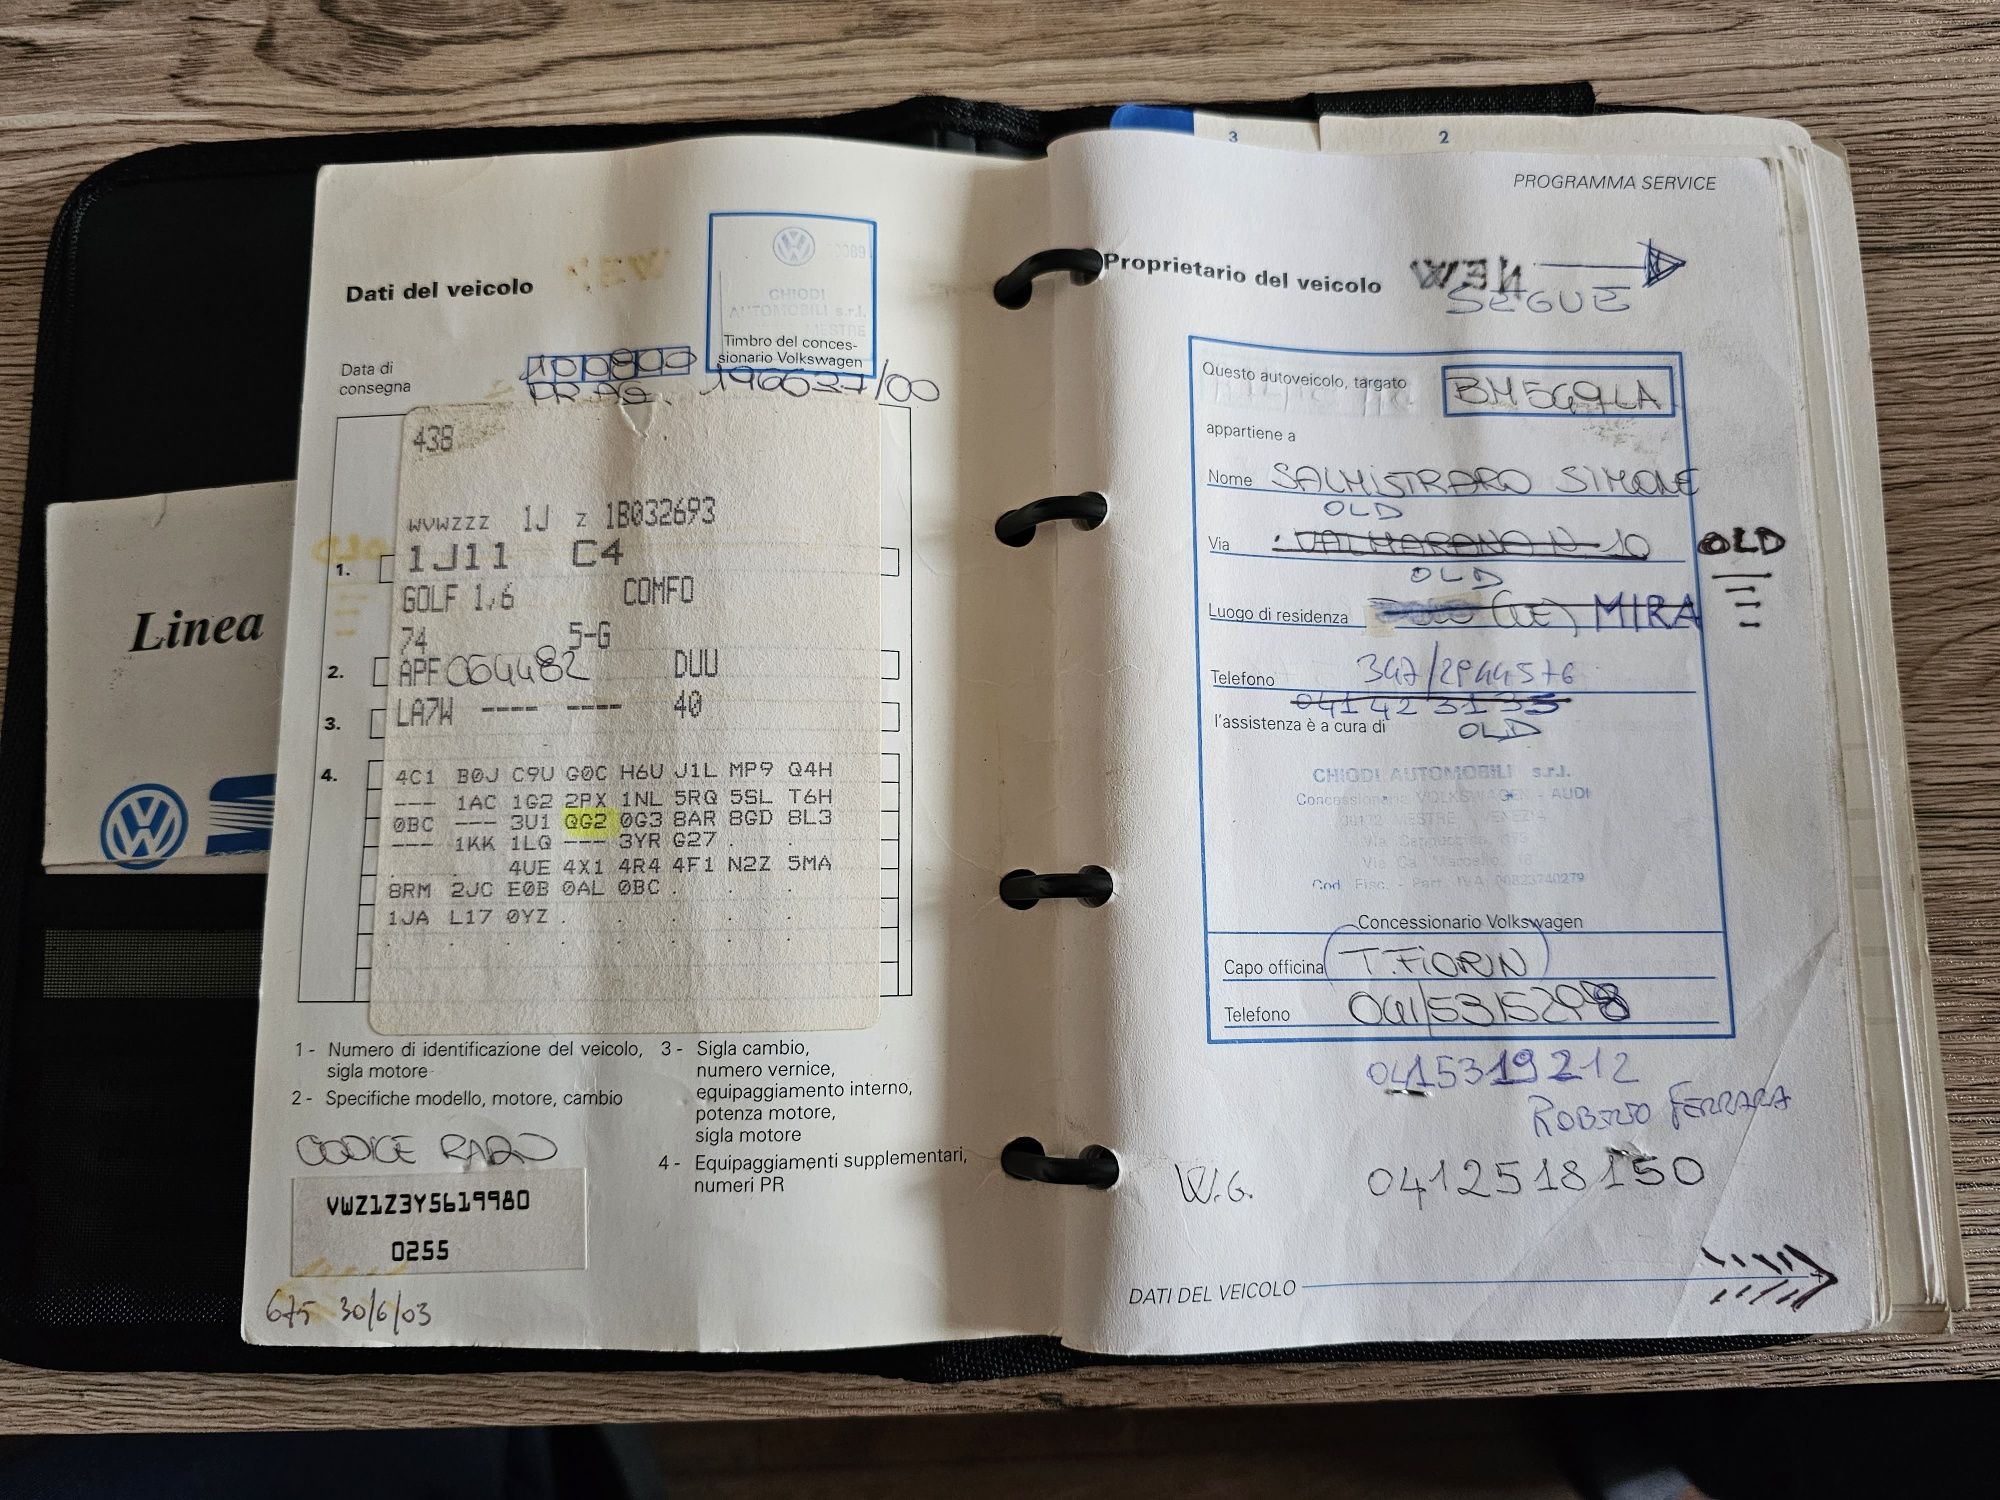 Linea
Dati del veicolo
CHIODI
AUTOMOBILI s.r.l.
MESTRE
Timbro del conces-
sionario Volkswagen
Data di
consegna
100800
PRAG. 196637/00
438
WVWZZZ 1J Z 1B032693
1. 1J11 C4
GOLF 1,6 COMFO
74 5-G
2. APF 064482 DUU
3. LA7W ---- ---- 40
4. 4C1 B0J C9U G0C H6U J1L MP9 Q4H
--- 1AC 1G2 2PX 1NL 5RQ 5SL T6H
0BC --- 3U1 QG2 0G3 8AR 8GD 8L3
--- 1KK 1LQ --- 3YR G27 . .
. . 4UE 4X1 4R4 4F1 N2Z 5MA
8RM 2JC E0B 0AL 0BC . . .
1JA L17 0YZ . . . . .
1 - Numero di identificazione del veicolo,
sigla motore
2 - Specifiche modello, motore, cambio
3 - Sigla cambio,
numero vernice,
equipaggiamento interno,
potenza motore,
sigla motore
4 - Equipaggiamenti supplementari,
numeri PR
CODICE RADIO
VWZ1Z3Y5619980
0255
675 30/6/03
3
2
PROGRAMMA SERVICE
Proprietario del veicolo
SEGUE
Questo autoveicolo, targato BM569LA
appartiene a
Nome SALMISTRARO SIMONE
OLD
Via VALMARANA N 10 OLD
OLD
Luogo di residenza (VE) MIRA
Telefono 347/2944576
041423133
l'assistenza è a cura di OLD
CHIODI AUTOMOBILI s.r.l.
Concessionaria VOLKSWAGEN - AUDI
MESTRE - VENEZIA
Cod. Fisc. - Part. IVA 00823740279
Concessionario Volkswagen
Capo officina T. FIORIN
Telefono 041/5315298
0415319212
ROBERTO FERRARA
W.G. 0412518150
DATI DEL VEICOLO